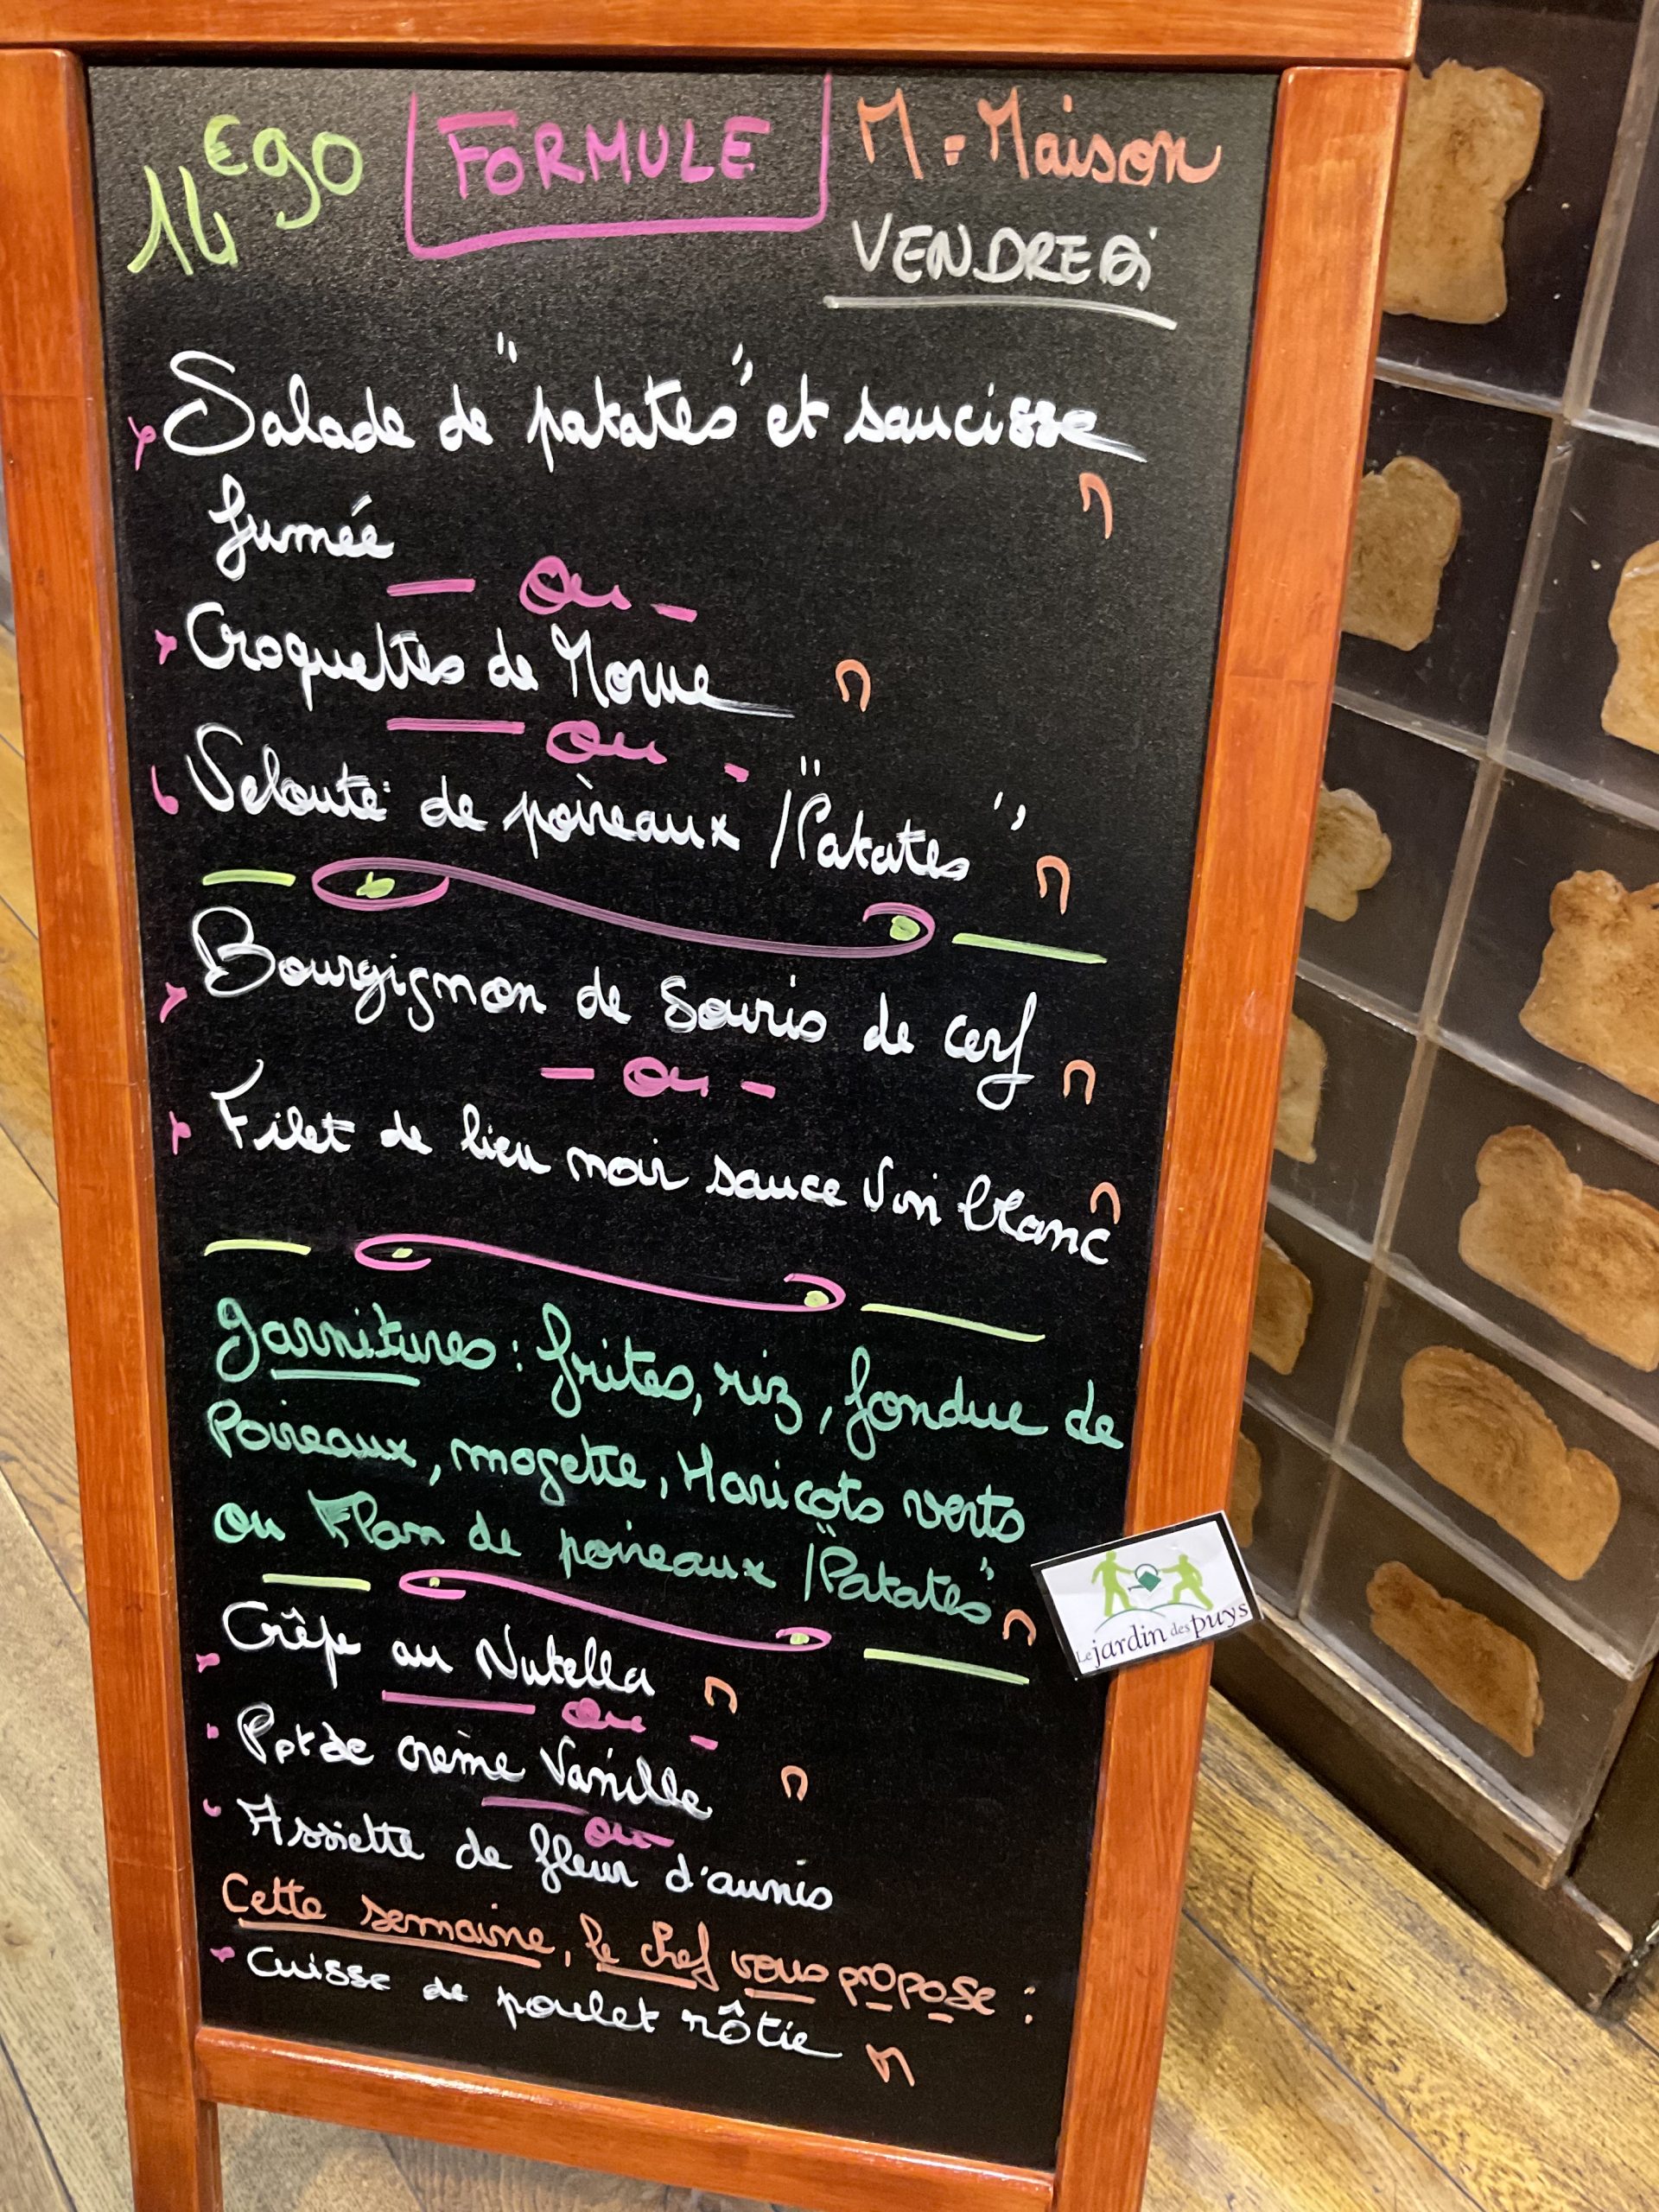 14€90 FORMULE M = Maison
VENDREDi
Salade de "patates" et saucisse
fumée M
ou
Croquettes de Morue M
ou
Velouté de poireaux / "Patates" M
Bourgignon de Souris de cerf M
ou
Filet de lieu noir sauce Vin blanc M
Garnitures : frites, riz, fondue de
Poireaux, mogette, Haricots verts
ou Flan de poireaux / "Patates" M
Crêpe au Nutella M
ou
Pot de crème Vanille M
ou
Assiette de fleur d'aunis
Cette semaine, le chef vous propose :
Cuisse de poulet rôtie M
Le jardin des puys